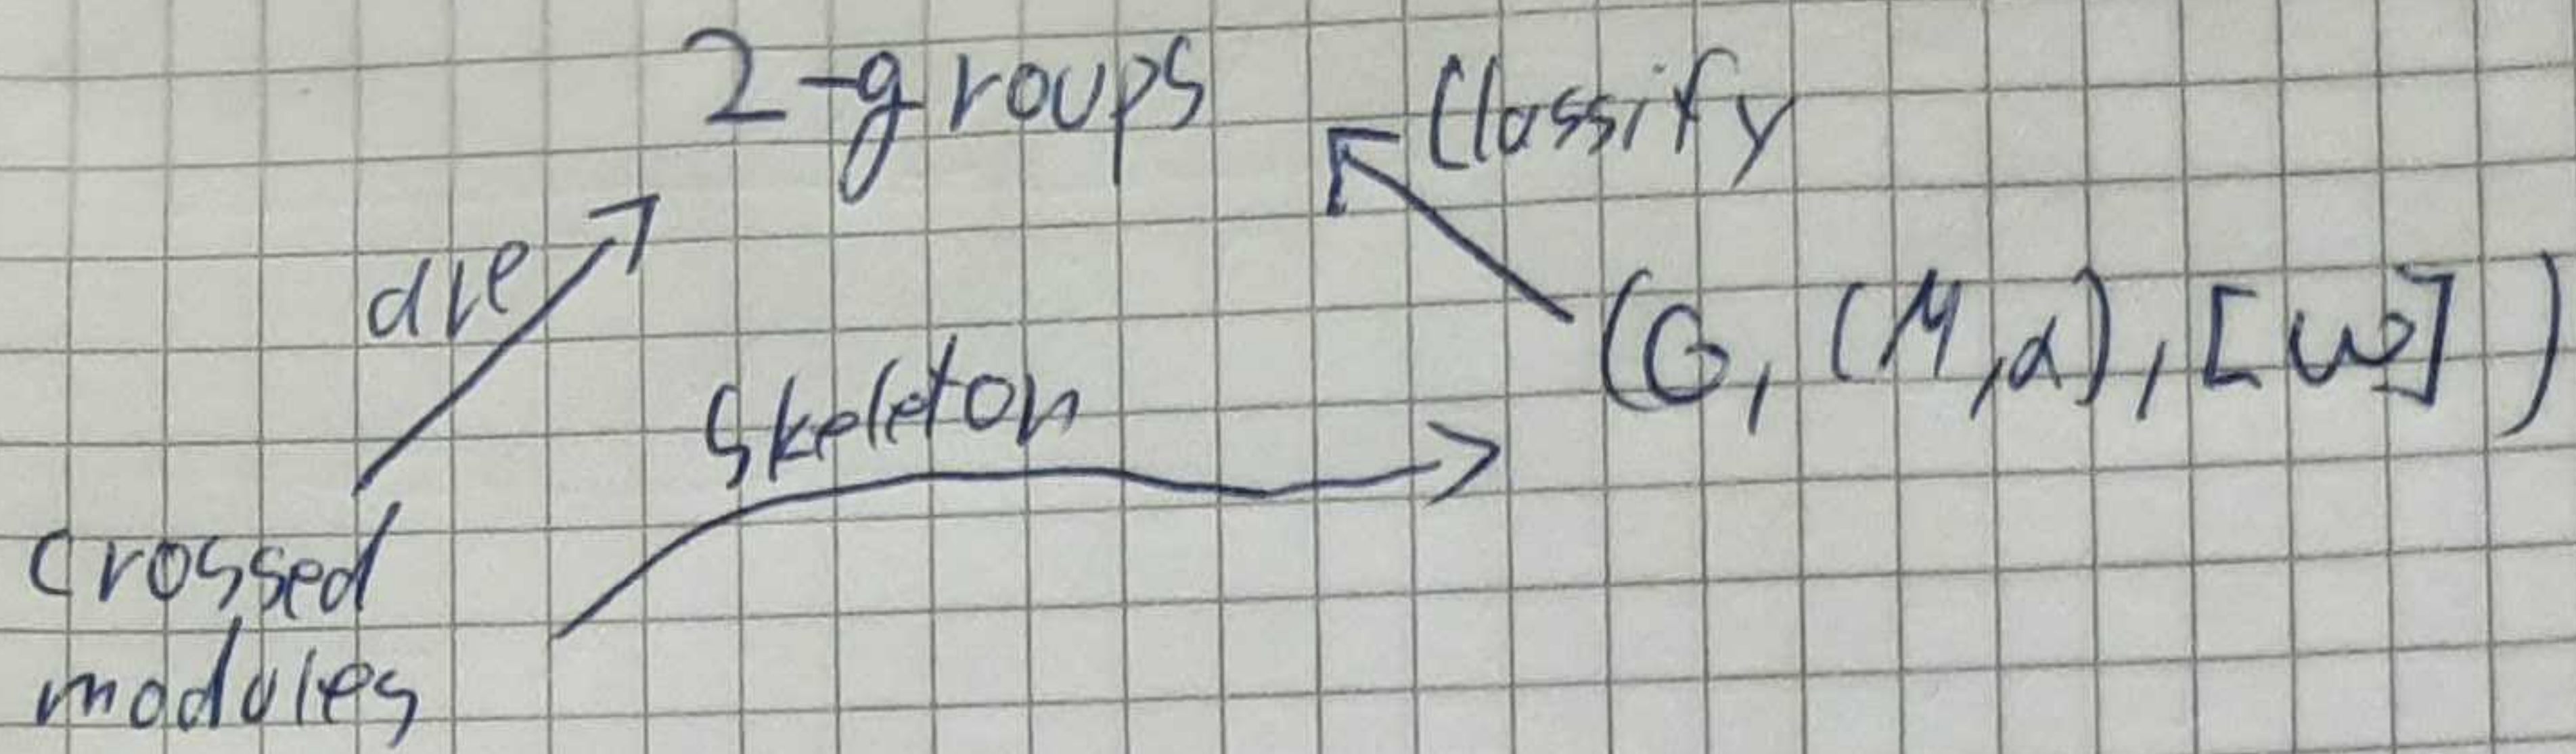 2-groups
Classify
are
(G, (M,α), [ω])
skeleton
crossed
modules